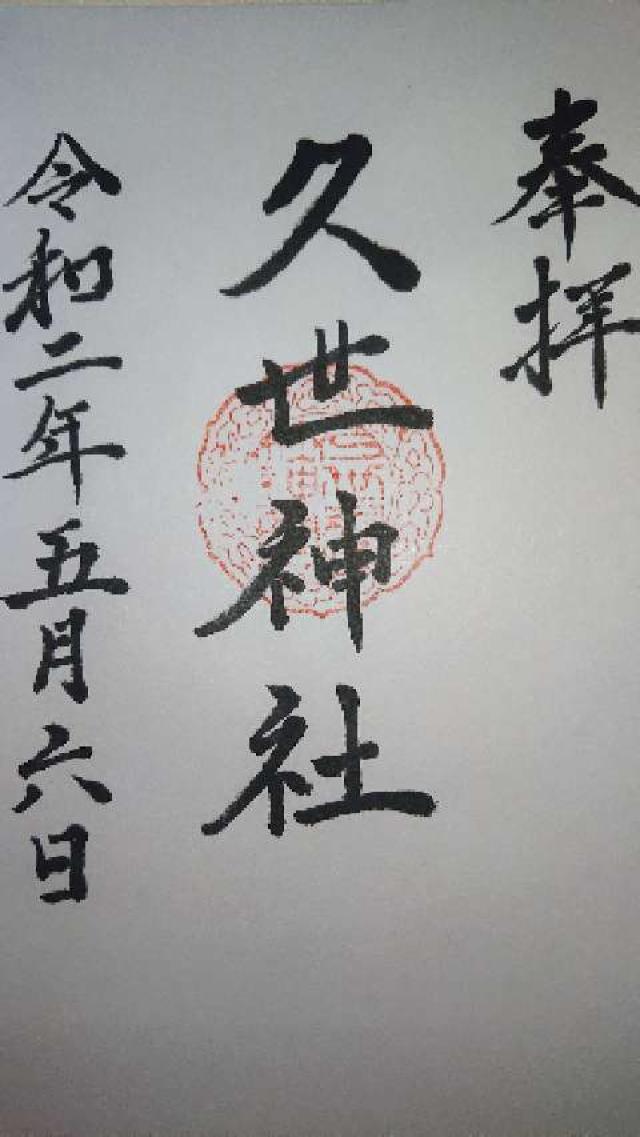 奉拝
久世神社
令和二年五月六日